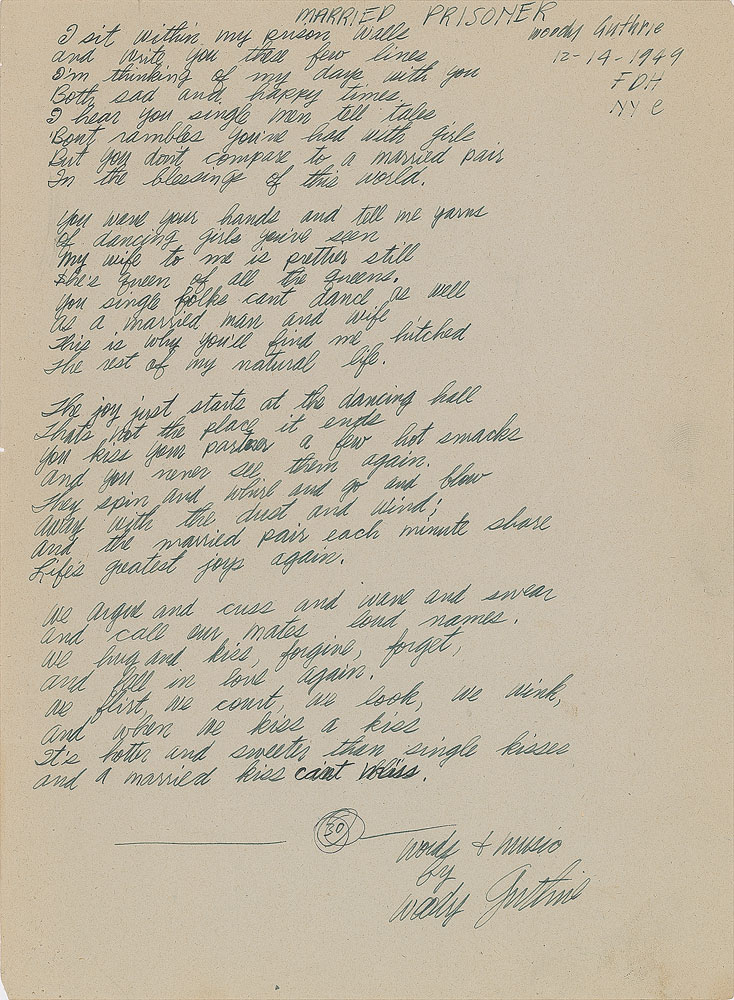 MARRIED PRISONER
Woody Guthrie
12-14-1949
FDH
NYC
I sit within my prison walls
and write you these few lines
I'm thinking of my days with you
Both sad and happy times.
I hear you single men tell tales
'Bout rambles you've had with girls
But you dont compare to a married pair
In the blessings of this world.
You wave your hands and tell me yarns
Of dancing girls you've seen
My wife to me is prettier still
She's queen of all the queens.
You single folks cant dance as well
As a married man and wife
This is why you'll find me hitched
The rest of my natural life.
The joy just starts at the dancing hall
Thats not the place it ends
You kiss your partner a few hot smacks
And you never see them again.
They spin and whirl and go and blow
away with the dust and wind;
And the married pair each minute share
Life's greatest joys again.
We argue and cuss and wave and swear
And call our mates loud names.
We hug and kiss, forgive, forget,
And fall in love again.
We flirt, we court, we look, we wink,
And when we kiss a kiss
It's hotter and sweeter than single kisses
and a married kiss cant miss.
30
Words & Music
by
Woody Guthrie